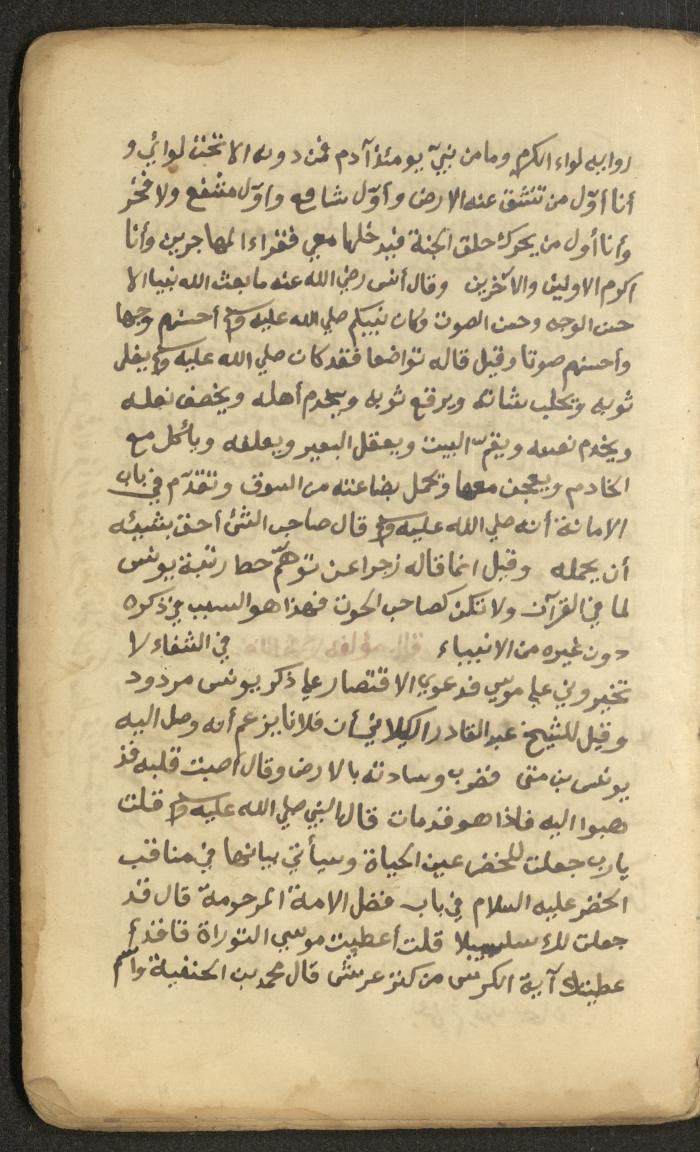 رواية لواء الكرم وما من نبيّ يومئذ آدم فمن دونه الا تحت لوائي و
أنا أوّل من تنشق عنه الارض وأوّل شافع وأوّل مشفع ولا فخر
وأنا أول من يحرك حلق الجنة فيدخلها معي فقراء المهاجرين وأنا
اكرم الاولين والآخرين وقال أنس رضي الله عنه ما بعث الله نبيا الا
حسن الوجه وحسن الصوت وكان نبيكم صلي الله عليه وسلم أحسنهم وجها
وأحسنهم صوتا وقيل قاله تواضعا فقد كان صلي الله عليه وسلم يفلى
ثوبه ويحلب شاته ويرقع ثوبه ويخدم أهله ويخصف نعله
ويخدم نفسه ويقمّ البيت ويعقل البعير ويعلفه ويأكل مع
الخادم ويعجن معها ويحمل بضاعته من السوق وتقدّم في باب
الامانة أنه صلي الله عليه وسلم قال صاحب الشئ أحق بشيئه
أن يحمله وقيل انما قاله زجرا عن توهّم حط رتبة يونس
لما في القرآن ولا تكن كصاحب الحوت فهذا هو السبب في ذكره
دون غيره من الانبياء قال مؤلفه رحمه الله في الشفاء لا
تخيروني علي موسي فدعوي الاقتصار علي ذكر يونس مردود
وقيل للشيخ عبد القادر الكيلاني أن فلانا يزعم أنه وصل اليه
يونس بن متى فضرب وسادته بالارض وقال أصبت قلبه فذ
هبوا اليه فاذا هو قد مات قال النبي صلي الله عليه وسلم قلت
يارب جعلت للخضر عين الحياة وسيأتي بيانها في مناقب
الخضر عليه السلام في باب فضل الامة المرحومة قال قد
جعلت لك سلسبيلا قلت أعطيت موسي التوراة قا فقد أ
عطيتك آية الكرسى من كنز عرشى قال محمد بن الحنفية واسم